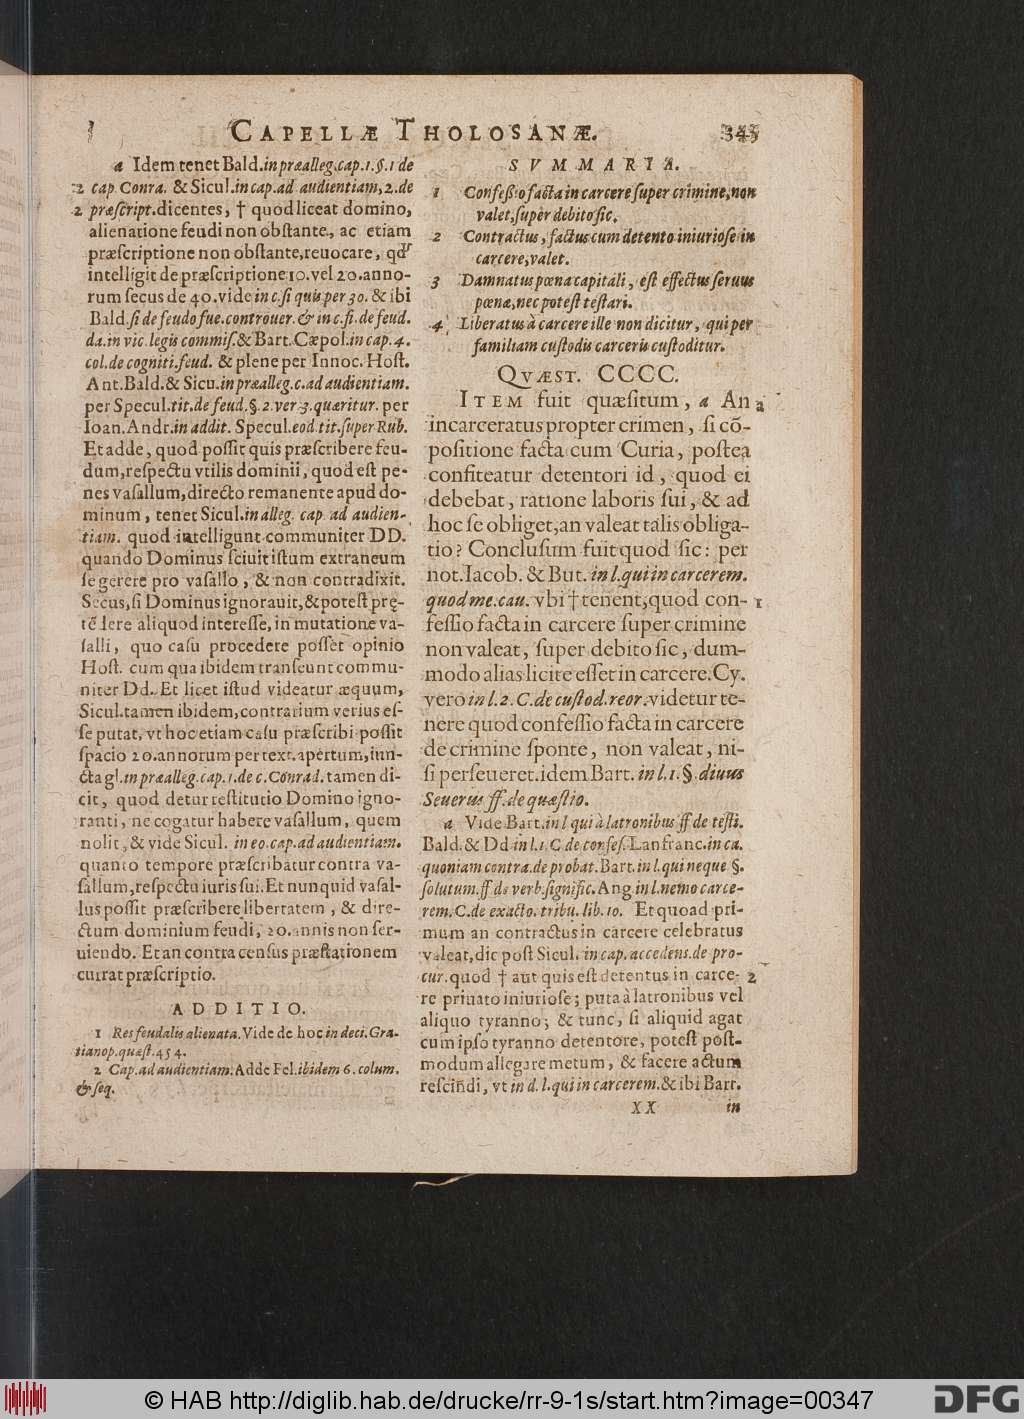 CAPELLÆ THOLOSANÆ. 345
a Idem tenet Bald.in præalleg.cap.1.§.1 de
2 cap.Conra. & Sicul.in cap.ad audientiam,2.de
2 præscript.dicentes, † quod liceat domino,
alienatione feudi non obstante, ac etiam
præscriptione non obstante,reuocare, qđ
intelligit de præscriptione 10.vel 20.anno-
rum secus de 40.vide in c.si quis per 30. & ibi
Bald.si de feudo fue.controuer.& in c.si.de feud.
da.in vic.legis commis.& Bart.Cæpol.in cap.4.
col.de cogniti.feud. & plene per Innoc. Host.
Ant.Bald.& Sicu.in præalleg.c.ad audientiam.
per Specul.tit.de feud.§.2.ver.3.quæritur. per
Ioan.Andr.in addit. Specul.eod.tit.super Rub.
Et adde, quod possit quis præscribere feu-
dum,respectu vtilis dominii, quod est pe-
nes vasallum,directo remanente apud do-
minum, tenet Sicul.in alleg. cap. ad audien-
tiam. quod intelligunt communiter DD.
quando Dominus sciuit istum extraneum
se gerere pro vasallo, & non contradixit.
Secus,si Dominus ignorauit,& potest prę-
tẽdere aliquod interesse, in mutatione va-
salli, quo casu procedere posset opinio
Host. cum qua ibidem transeunt commu-
niter Dd. Et licet istud videatur æquum,
Sicul.tamen ibidem,contrarium verius es-
se putat, vt hoc etiam casu præscribi possit
spacio 20.annorum per text.apertum,iun-
cta gl.in præalleg.cap.1.de c.Conrad.tamen di-
cit, quod detur restitutio Domino igno-
ranti, ne cogatur habere vasallum, quem
nolit, & vide Sicul. in eo.cap.ad audientiam.
quanto tempore præscribatur contra va-
sallum,respectu iuris sui.Et nunquid vasal-
lus possit præscribere libertatem, & dire-
ctum dominium feudi, 20.annis non ser-
uiendo. Et an contra census præstationem
currat præscriptio.
ADDITIO.
1 Res feudalis alienata.Vide de hoc in deci.Gra-
tianop.quæst.454.
2 Cap.ad audientiam.Adde Fel.ibidem 6.colum.
& seq.
SVMMARIA.
1 Confessio facta in carcere super crimine,non
valet,super debito sic.
2 Contractus, factus cum detento iniuriose in
carcere,valet.
3 Damnatus pœna capitali, est effectus seruus
pœnæ,nec potest testari.
4 Liberatus à carcere ille non dicitur, qui per
familiam custodis carceris custoditur.
QVÆST. CCCC.
ITEM fuit quæsitum, a An a
incarceratus propter crimen, si cō-
positione facta cum Curia, postea
confiteatur detentori id, quod ei
debebat, ratione laboris sui, & ad
hoc se obliget,an valeat talis obliga-
tio? Conclusum fuit quod sic: per
not.Iacob. & But. in l.qui in carcerem.
quod me.cau. vbi † tenent,quod con- 1
fessio facta in carcere super crimine
non valeat, super debito sic, dum-
modo alias licite esset in carcere.Cy.
vero in l.2.C.de custod.reor.videtur te-
nere quod confessio facta in carcere
de crimine sponte, non valeat, ni-
si perseueret.idem Bart. in l.1.§.diuus
Seuerus ff.de quæstio.
a Vide Bart.in l qui à latronibus ff de testi.
Bald.& Dd in l.1.C de confes.Lanfranc.in ca.
quoniam contra.de probat.Bart.in l.qui neque §.
solutum.ff.de verb.signific.Ang.in l.nemo carce-
rem.C.de exacto.tribu.lib.10. Et quoad pri-
mum an contractus in carcere celebratus
valeat,dic post Sicul. in cap.accedens.de pro-
cur.quod † aut quis est detentus in carce- 2
re priuato iniuriose; puta à latronibus vel
aliquo tyranno; & tunc, si aliquid agat
cum ipso tyranno detentore, potest post-
modum allegare metum, & facere actum
rescindi, vt in d.l.qui in carcerem.& ibi Bart.
XX in
© HAB http://diglib.hab.de/drucke/rr-9-1s/start.htm?image=00347
DFG